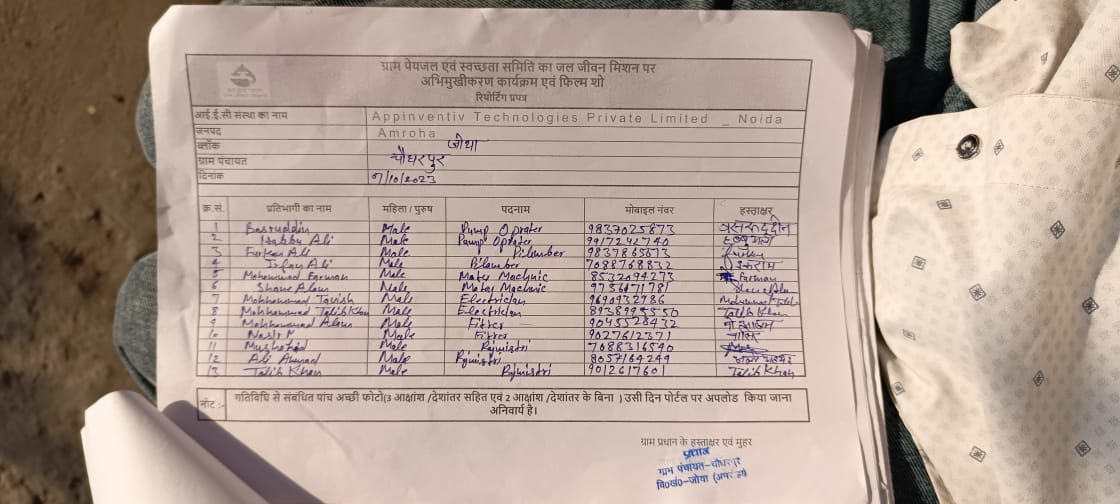 ग्राम पेयजल एवं स्वच्छता समिति का जल जीवन मिशन पर
अभिमुखीकरण कार्यक्रम एवं फिल्म शो
रिपोर्टिंग प्रपत्र
आई.ई.सी संस्था का नाम Appinventiv Technologies Private Limited _ Noida
जनपद Amroha
ब्लॉक जोया
ग्राम पंचायत चौधरपुर
दिनांक 9/10/2023
क्र.सं. प्रतिभागी का नाम महिला / पुरुष पदनाम मोबाइल नंवर हस्ताक्षर
1 Male Pump Oprater 9837025873
2 Habbu Ali Male Pump Oprater 9917242740
3 Furkan Ali Male Pilumber 9837865673
4 Male Pilumber 7088768832 इकराम
5 Mohammad Farman Male Mater Machnic 8532094273 Farman
6 Shane Alam Male Mater Machnic 9756171781
7 Mohhammad Tavish Male Electrician 9690932786
8 Mohhammad Talib Khan Male Electrician 8938995550 Talib Khan
9 Mohhammad Alam Male Fitter 9045528432
10 Male Fitter 9027612371
11 Male Rajmistri 7088316540
12 Ali Ahmad Male Rajmistri 8057164249
13 Talib Khan Male Rajmistri 9012617601 Talib Khan
नोट :- गतिविधि से संबंधित पांच अच्छी फोटो(3 आक्षांश /देशांतर सहित एवं 2 आक्षांश /देशांतर के बिना ) उसी दिन पोर्टल पर अपलोड किया जाना
अनिवार्य है।
ग्राम प्रधान के हस्ताक्षर एवं मुहर
प्रधान
ग्राम पंचायत-चौधरपुर
वि०ख०-जोया